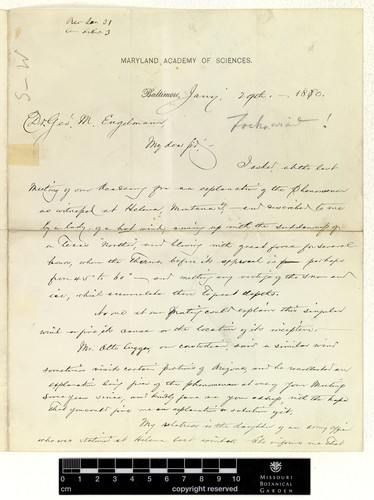 Rec Jan. 31
3
S-W
MARYLAND ACADEMY OF SCIENCES.
Baltimore, Jany. 29th. 1880.
Dr. Geo. M. Engelmann,
!
My dear Sir:
I asked at the last
Meeting of our Academy for an explanation of the Phenomenon
as witnessed at Helena, Montana, and described to me
by a lady, of a hot wind, coming up with the suddenness of
a Texas Norther, and blowing with great force for several
hours, when the Therm. before its approach is perhaps
from 45° to 60° and melting any vestige of the snow and
ice, which accumulate there to great depths.
No one at our Meeting could explain this singular
wind or give its cause or the location of its inception.
Mr. Otto Lugger, our custodian, said a similar wind
sometimes visits certain portions of and he recollected an
explanation being given of the phenomenon at one of your Meetings
some years since, and kindly gave me your address with the hope
that you could give me an explanation or solution of it.
My relative is the daughter of an army officer
who was stationed at Helena last winter. She informs me that
0 1 2 3 4 5 6 7 8 9 10
cm
copyright reserved
MISSOURI
BOTANICAL
GARDEN